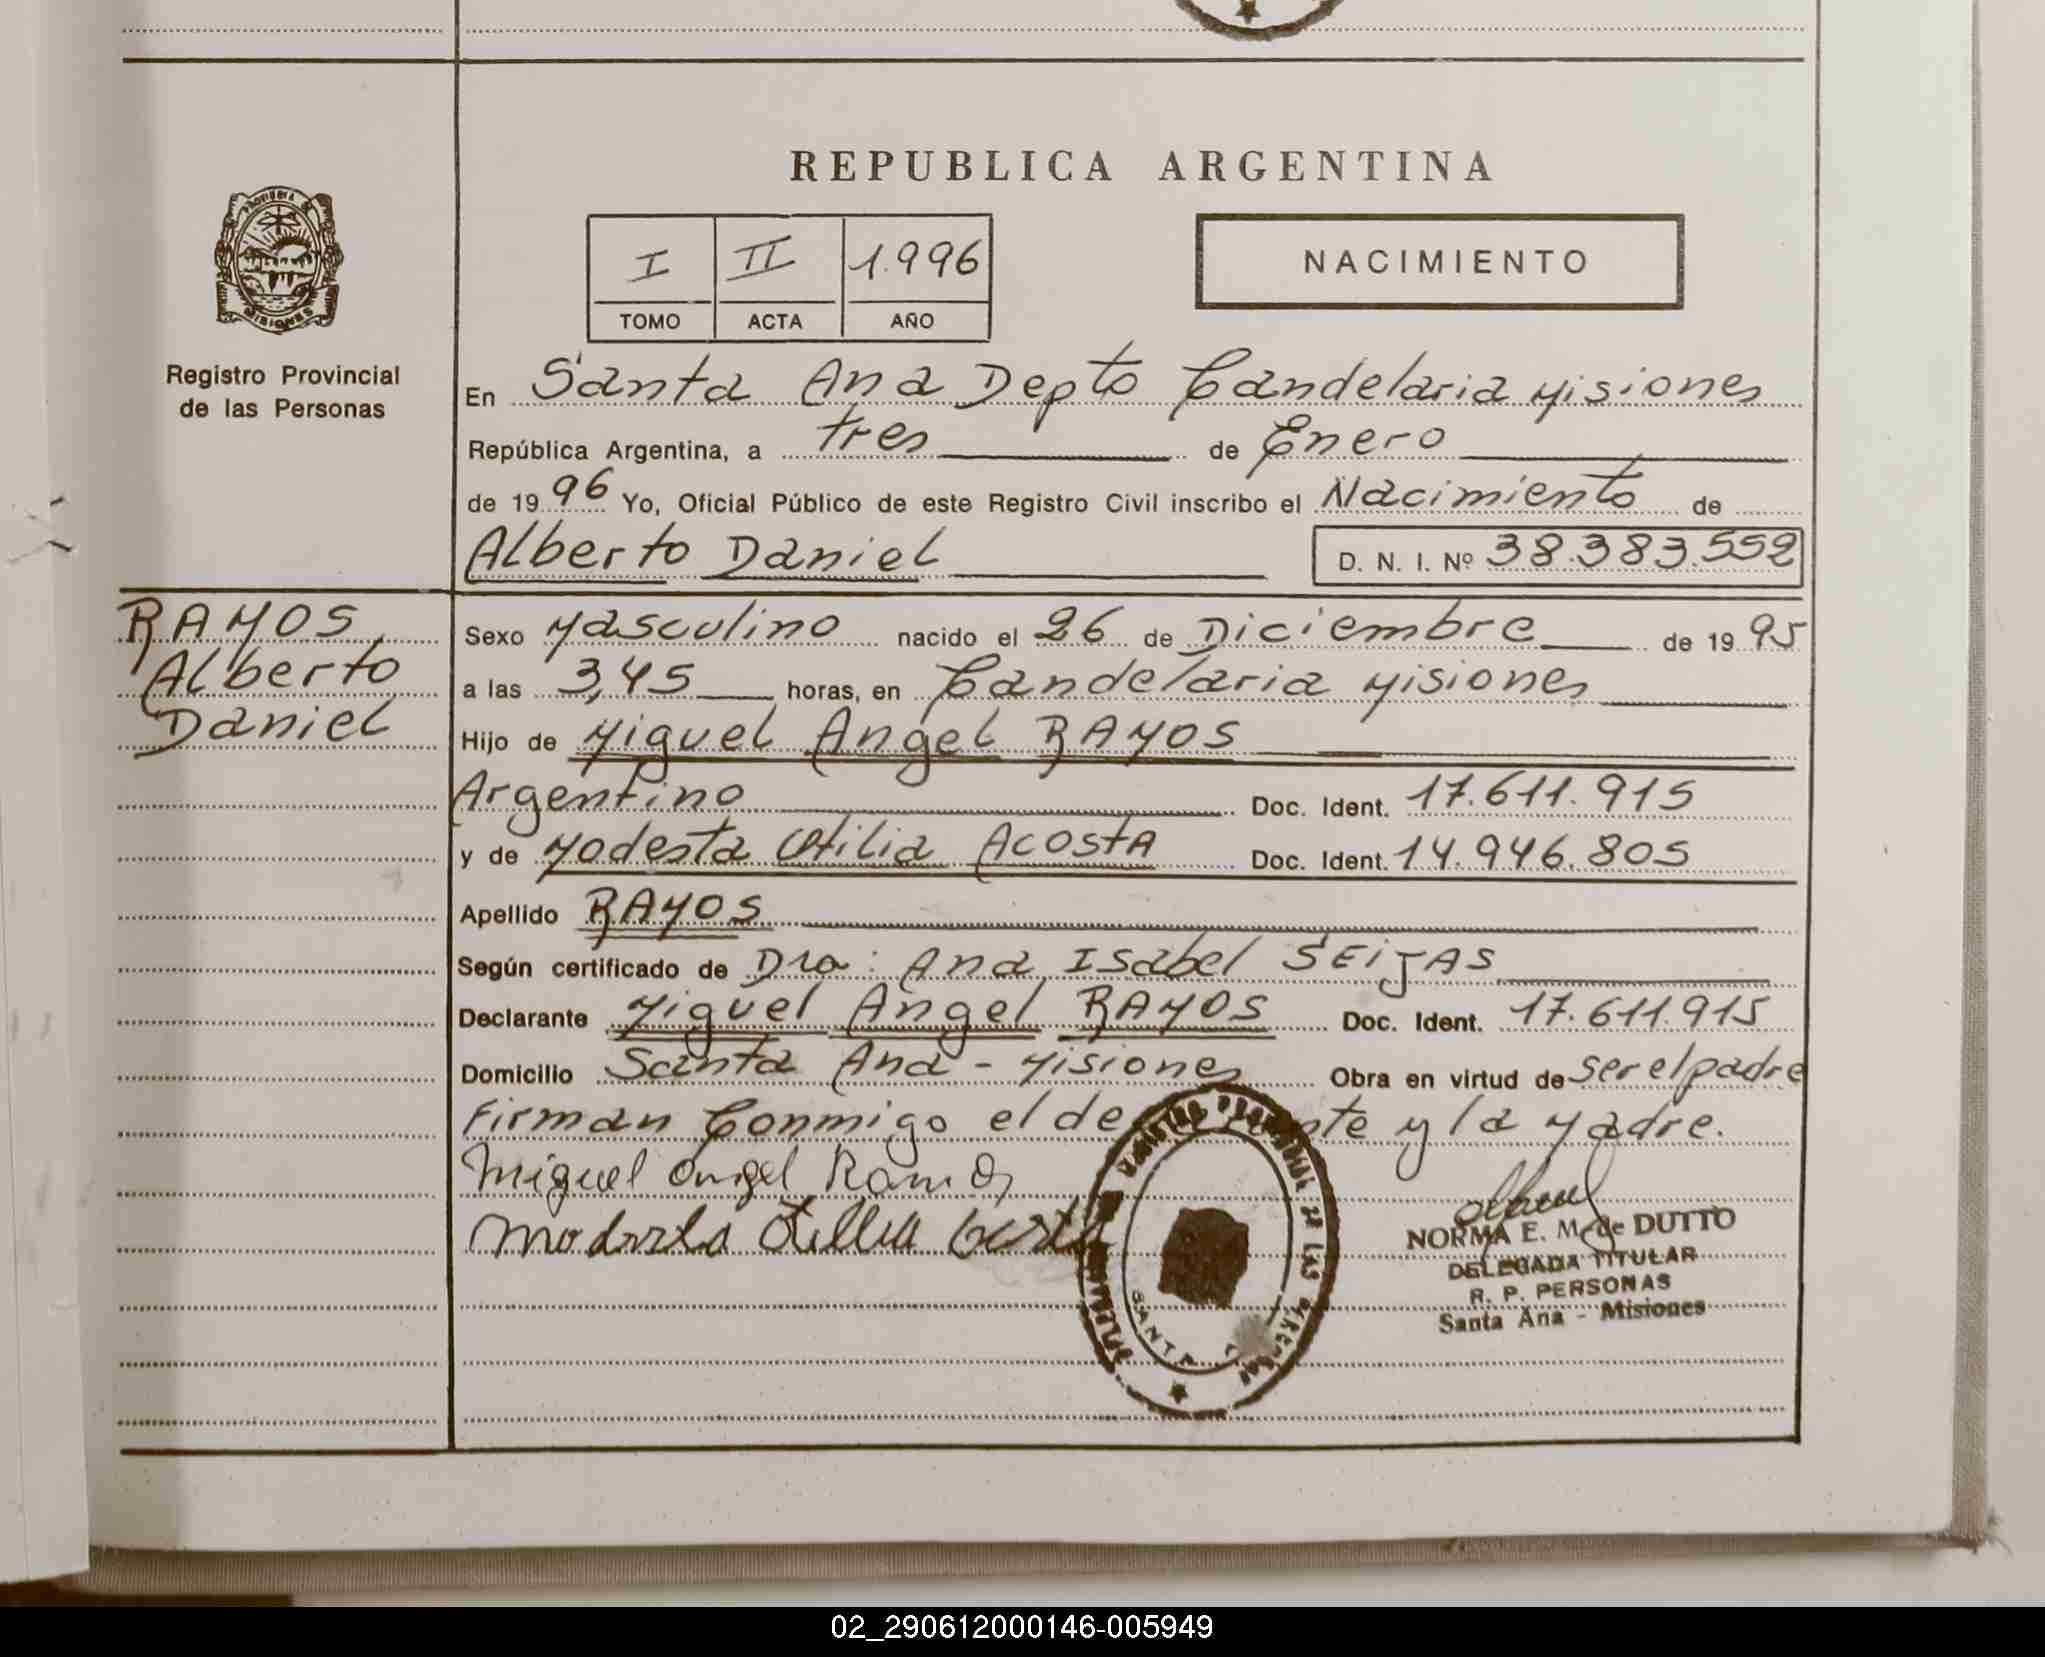 REPUBLICA ARGENTINA
PROVINCIA DE
MISIONES
Registro Provincial
de las Personas
I II 1.996
TOMO ACTA AÑO
NACIMIENTO
En Santa Ana Depto Candelaria Misiones
República Argentina, a tres de Enero
de 19 96 Yo, Oficial Público de este Registro Civil inscribo el Nacimiento de
Alberto Daniel D. N. I. Nº 38.383.552
RAMOS
Alberto
Daniel
Sexo Masculino nacido el 26 de Diciembre de 19 95
a las 3,45 horas, en Candelaria Misiones
Hijo de Miguel Angel RAMOS
Argentino Doc. Ident. 17.611.915
y de Modesta Otilia ACOSTA Doc. Ident. 14.946.805
Apellido RAMOS
Según certificado de Dra: Ana Isabel SEIJAS
Declarante Miguel Angel RAMOS Doc. Ident. 17.611.915
Domicilio Santa Ana - Misiones Obra en virtud de ser el padre
Firman Conmigo el de nte y la Madre.
Miguel Angel Ramos
NORMA E. M. de DUTTO
DELEGADA TITULAR
R. P. PERSONAS
Santa Ana - Misiones
02_290612000146-005949